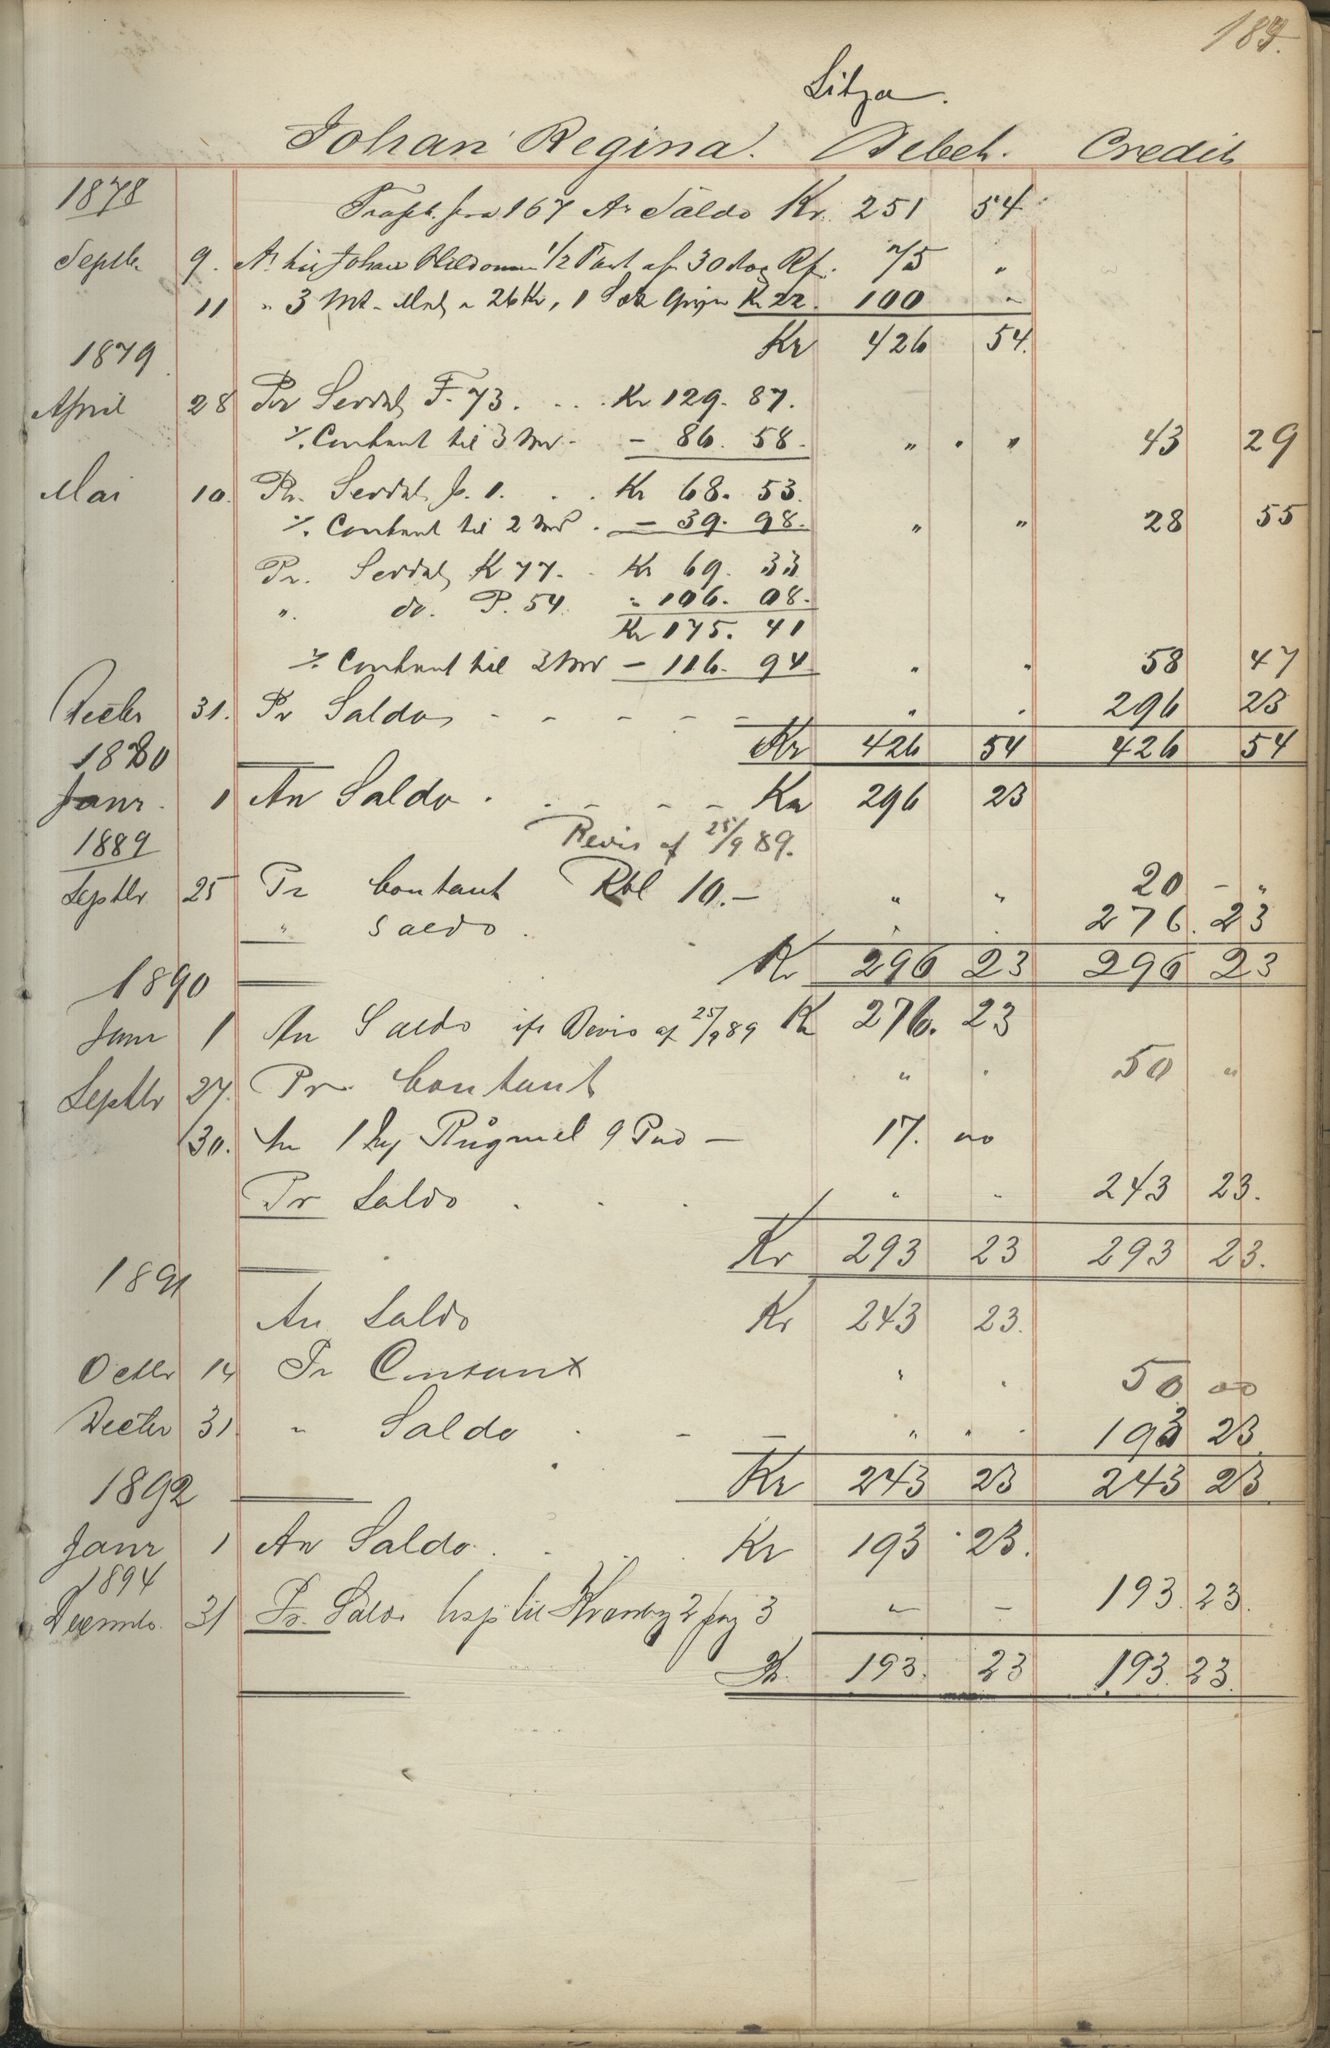 Litza.
Johan Regina. Debet. Credit
1878
Trspt. fra 167 An Saldo Kr 251 54
Septb. 9. An Johan 1/2 Part af 30 75 "
11 " 3 Mt. a 26 Kr, 1 Kr 22. 100 "
Kr 426 54.
1879
April 28 Pr Seddel F. 73. . . . Kr 129. 87.
% Contant til 3 - 86. 58. " " " 43 29
Mai 10. Pr. Seddel J. 1. . . . Kr 68. 53.
% Contant til 2 . - 39. 98. " " 28 55
Pr. Seddel K 77. . Kr 69. 33
" do. P. 54 " 106. 08.
Kr 175. 41
% Contant til 3 - 116. 94 " " 58 47
Decbr 31. Pr Saldo - - - - - " " 296 23
Kr 426 54 426 54
1880
Janr. 1 An Saldo . . - - - - Kr 296 23
1889 Revis af 25/9 89.
Septbr 25 Pr Contant Rbl 10.- " " 20 - "
" Saldo . " " 276. 23
Kr 296 23 296 23
1890
Janr 1 An Saldo Revis af 25/9 89 Kr 276. 23
Septbr 27. Pr Contant " " 50 "
30. An 1 Rugmel 9 Pud - 17. 00
Pr Saldo . . . " " 243 23.
Kr 293 23 293 23.
1891
An Saldo Kr 243 23.
Octbr 14 Pr Contant " " 50 00
Decbr 31 " Saldo . - - " " 193 23.
Kr 243 23 243 23
1892
Janr 1 An Saldo . . . . Kr 193 23.
1894
31 Pr. Saldo til 2 pag 3 - - 193. 23.
Kr. 193. 23 193. 23.